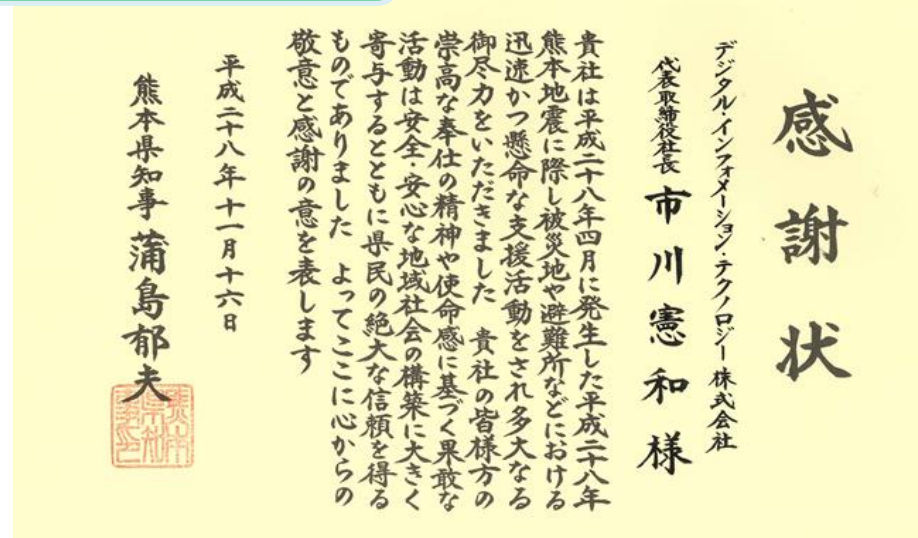 感謝状
デジタル・インフォメーション・テクノロジー株式会社
代表取締役社長 市川憲和様
貴社は平成二十八年四月に発生した平成二十八年
熊本地震に際し被災地や避難所などにおける
迅速かつ懸命な支援活動をされ多大なる
御尽力をいただきました 貴社の皆様方の
崇高な奉仕の精神や使命感に基づく果敢な
活動は安全・安心な地域社会の構築に大きく
寄与するとともに県民の絶大な信頼を得る
ものでありました よってここに心からの
敬意と感謝の意を表します
平成二十八年十一月十六日
熊本県知事 蒲島郁夫